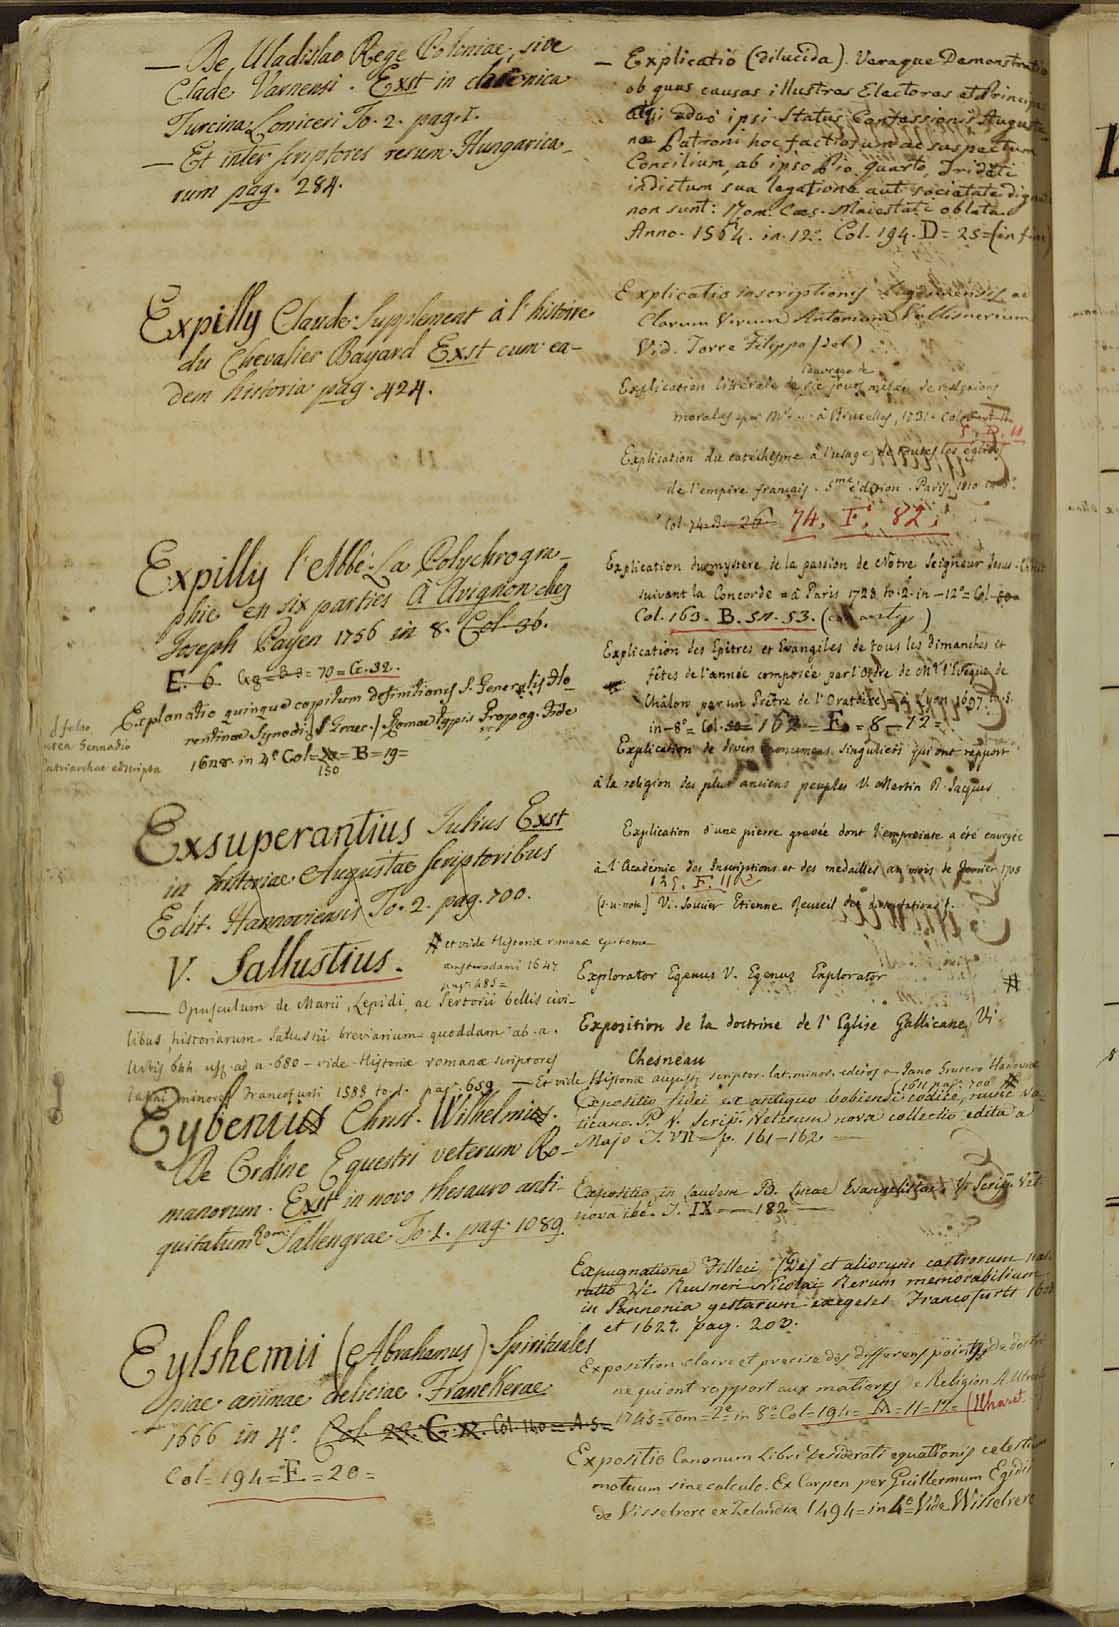 — De Uladislao Rege Poloniae, sive
Clade Varnensi. Exst in
Turcica Loniceri To. 2. pag. I.
— Et inter scriptores rerum Hungarica-
rum pag. 284.
Expilly Claude. Supplement à l'histoire
du Chevalier Bayard Exst cum ea-
dem historia pag. 424.
Expilly l'Abbé. La Polychrogra-
phie en six parties À Avignon chez
Joseph Payen 1756 in 8. Col 36.
E. 6. = 70 = C. 32.
Explanatio quinque capitum definitionis S. Generalis Flo-
rentinae Synodi / Graec. / Romae typis Propag. Fide
1628. in 4º Col= = B = 19=
150
falso
Gennadio
Patriarchae adscripta
Exsuperantius Julius Exst
in historiae Augustae scriptoribus
Edit. Hannoviensis To. 2. pag. 700.
V. Sallustius.
# et vide Historiæ romanæ epitome
Amsterodami 1647
pag. 485 =
— Opusculum de Marii, Lepidi, ac Sertorii bellis civi-
libus, historiarum Sallustii breviarium quoddam ab a.
Urbis 644 usq. ad a. 680 - vide Historiæ romanæ scriptores
latini minores Francofurti 1588 to. 1. pag. 659 — Et vide Historiæ augustæ scriptor. lat. minor. editos a Jano Grutero Hanoviæ
1611 pag. 700 #
Eybenius Christ. Wilhelmus.
De Ordine Equestri veterum Ro-
manorum. Exst in novo thesauro anti-
quitatum Rom. Sallengrae To. 1. pag. 1089.
Eylshemii (Abrahamus) Spirituales
piae animae deliciae. Franekerae
1666 in 4º. Col. 22. G. 12. Col. 140 = A. 5 =
Col = 194 = E = 20 =
— Explicatio (dilucida). Veraque Demonstratio
ob quas causas illustres Electores et Principes
ipsi Status Confessionis Augusta-
næ Patroni hoc factiosum ac suspectum
Concilium, ab ipso Pio quarto, Tridēti
indictum sua legatione aut societate dignati
non sunt: Rom. Caes. Maiestati oblata.
Anno. 1564. in. 12º. Col. 194. D = 25 = (in fine)
Explicatio inscriptionis ad
Clarum Virum Antonium Vallisnerium
Vid. Torre Filippo (del)
Explication littérale de l'ouvrage de six jours mêlée de reflexions
morales par Mr... à Bruxelles, 1731. Col
5. B. 11
Explication du catéchisme à l'usage de toutes les églises
de l'empire français. 5me édition. Paris. 1810 in 8º.
Col 74. 26 74. F. 82.
Explication du mystere de la passion de Nôtre Seigneur Jesus-Christ
suivant la Concorde = à Paris 1728 to. 2. in - 12º = Col
Col. 163. B. 52. 53.
Explication des Epitres et Evangiles de tous les dimanches et
fêtes de l'année composée par l'Ordre de Mr. l'Evêque de
Châlon par un Prêtre de l'Oratoire = à Lyon 1697. to. 5.
in - 8º = Col. = 162 = E = 8 - 12 =
Explication de divers monumens singuliers qui ont rapport
à la religion des plus anciens peuples V. Martin D. Jacques
Explication d'une pierre gravée dont l'empreinte a été envoyée
à l'Académie des Inscriptions et des médailles au mois de Janvier 1708
125. F. 11
Vi. Souciet Etienne Recueil des dissertations t.
Explorator Egenus V. Egenus Explorator #
Exposition de la doctrine de l'Eglise Gallicane, Vi.
Chesneau
Expositio fidei ex antiquo bobiensi codice, nunc va-
ticano. P. V. Scrip. Veterum nova collectio edita a
Majo T. VII - p. 161-162 —
Expositio in laudem B. Lucae Evangelistae. V. Scrip. Vet.
nova ibi. T. IX — 182 —
Expugnatione Filleci (De) et aliorum castrorum nar-
ratio Vi. Reusneri Nicolai Rerum memorabilium
in Pannonia gestarum exegeses Francofurti 1603
et 1627. pag. 202.
Exposition claire et precise des differens points de doctri-
ne qui ont rapport aux matieres de Religion A Utrecht
1745 = Tom = 2º in 8º Col = 194 = A = 11 = 12 =
Expositio Canonum Libri Desiderati equationis celestium
motuum sine calculo. Ex Carpen per Guillermum Egidii
de Vissekere ex Zelandia 1494 = in 4º = Vide Wissekere